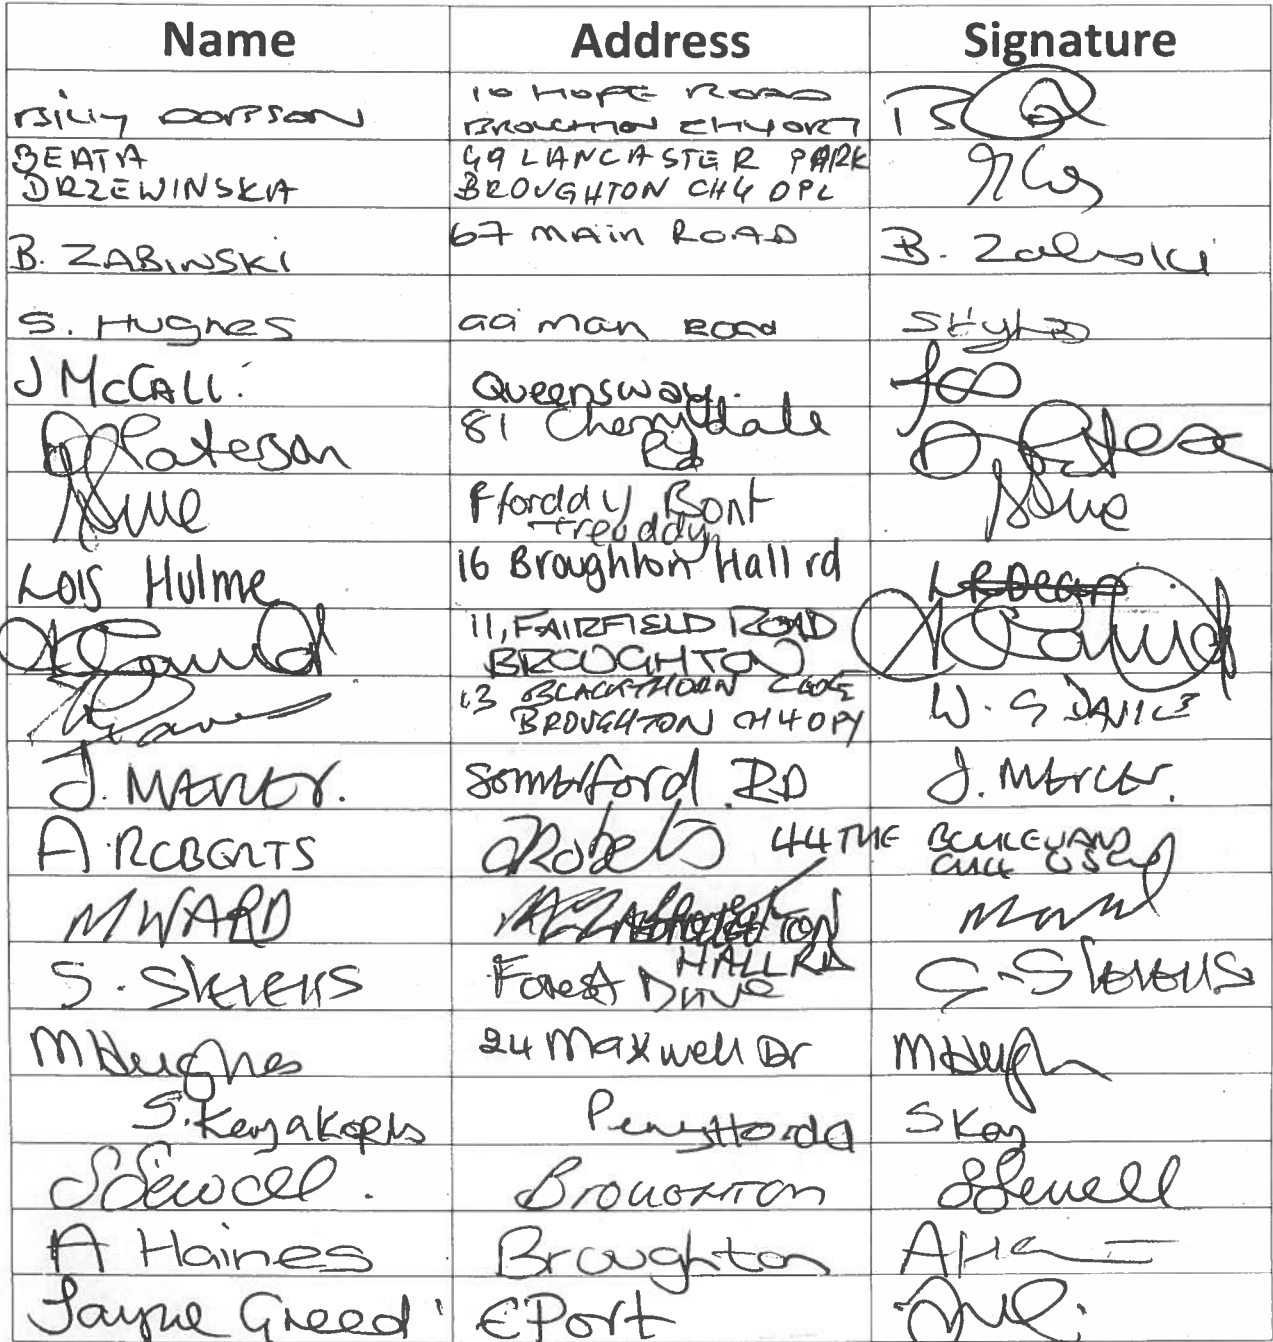 Name Address Signature
Billy DOBSON 10 HOPE ROAD
BROUGHTON
BEATA 49 LANCASTER PARK
DRZEWINSKA BROUGHTON CH4 OPL
B. ZABINSKI 67 MAIN ROAD B. Zabinski
S. Hughes main road
J McCALL. Queensway.
Paterson 81 Cherrydale
Rd
Ffordd y Bont
Treuddyn
Lois Hulme 16 Broughton Hall rd
11, FAIRFIELD ROAD
BROUGHTON
13 BLACKTHORN CLOSE W. G DAVIES
BROUGHTON CH4 OPY
J. MERCER. Somerford RD J. MERCER.
A. ROBERTS ARoberts 44 THE BOULEVARD
M WARD
HALL RD
S. STEVENS Forest Drive S. STEVENS
M Hughes 24 Maxwell Dr M Hugh
S. Penyffordd S Kay
S Sewell. BROUGHTON S Sewell
A Haines Broughton
Jayne Greed EPort